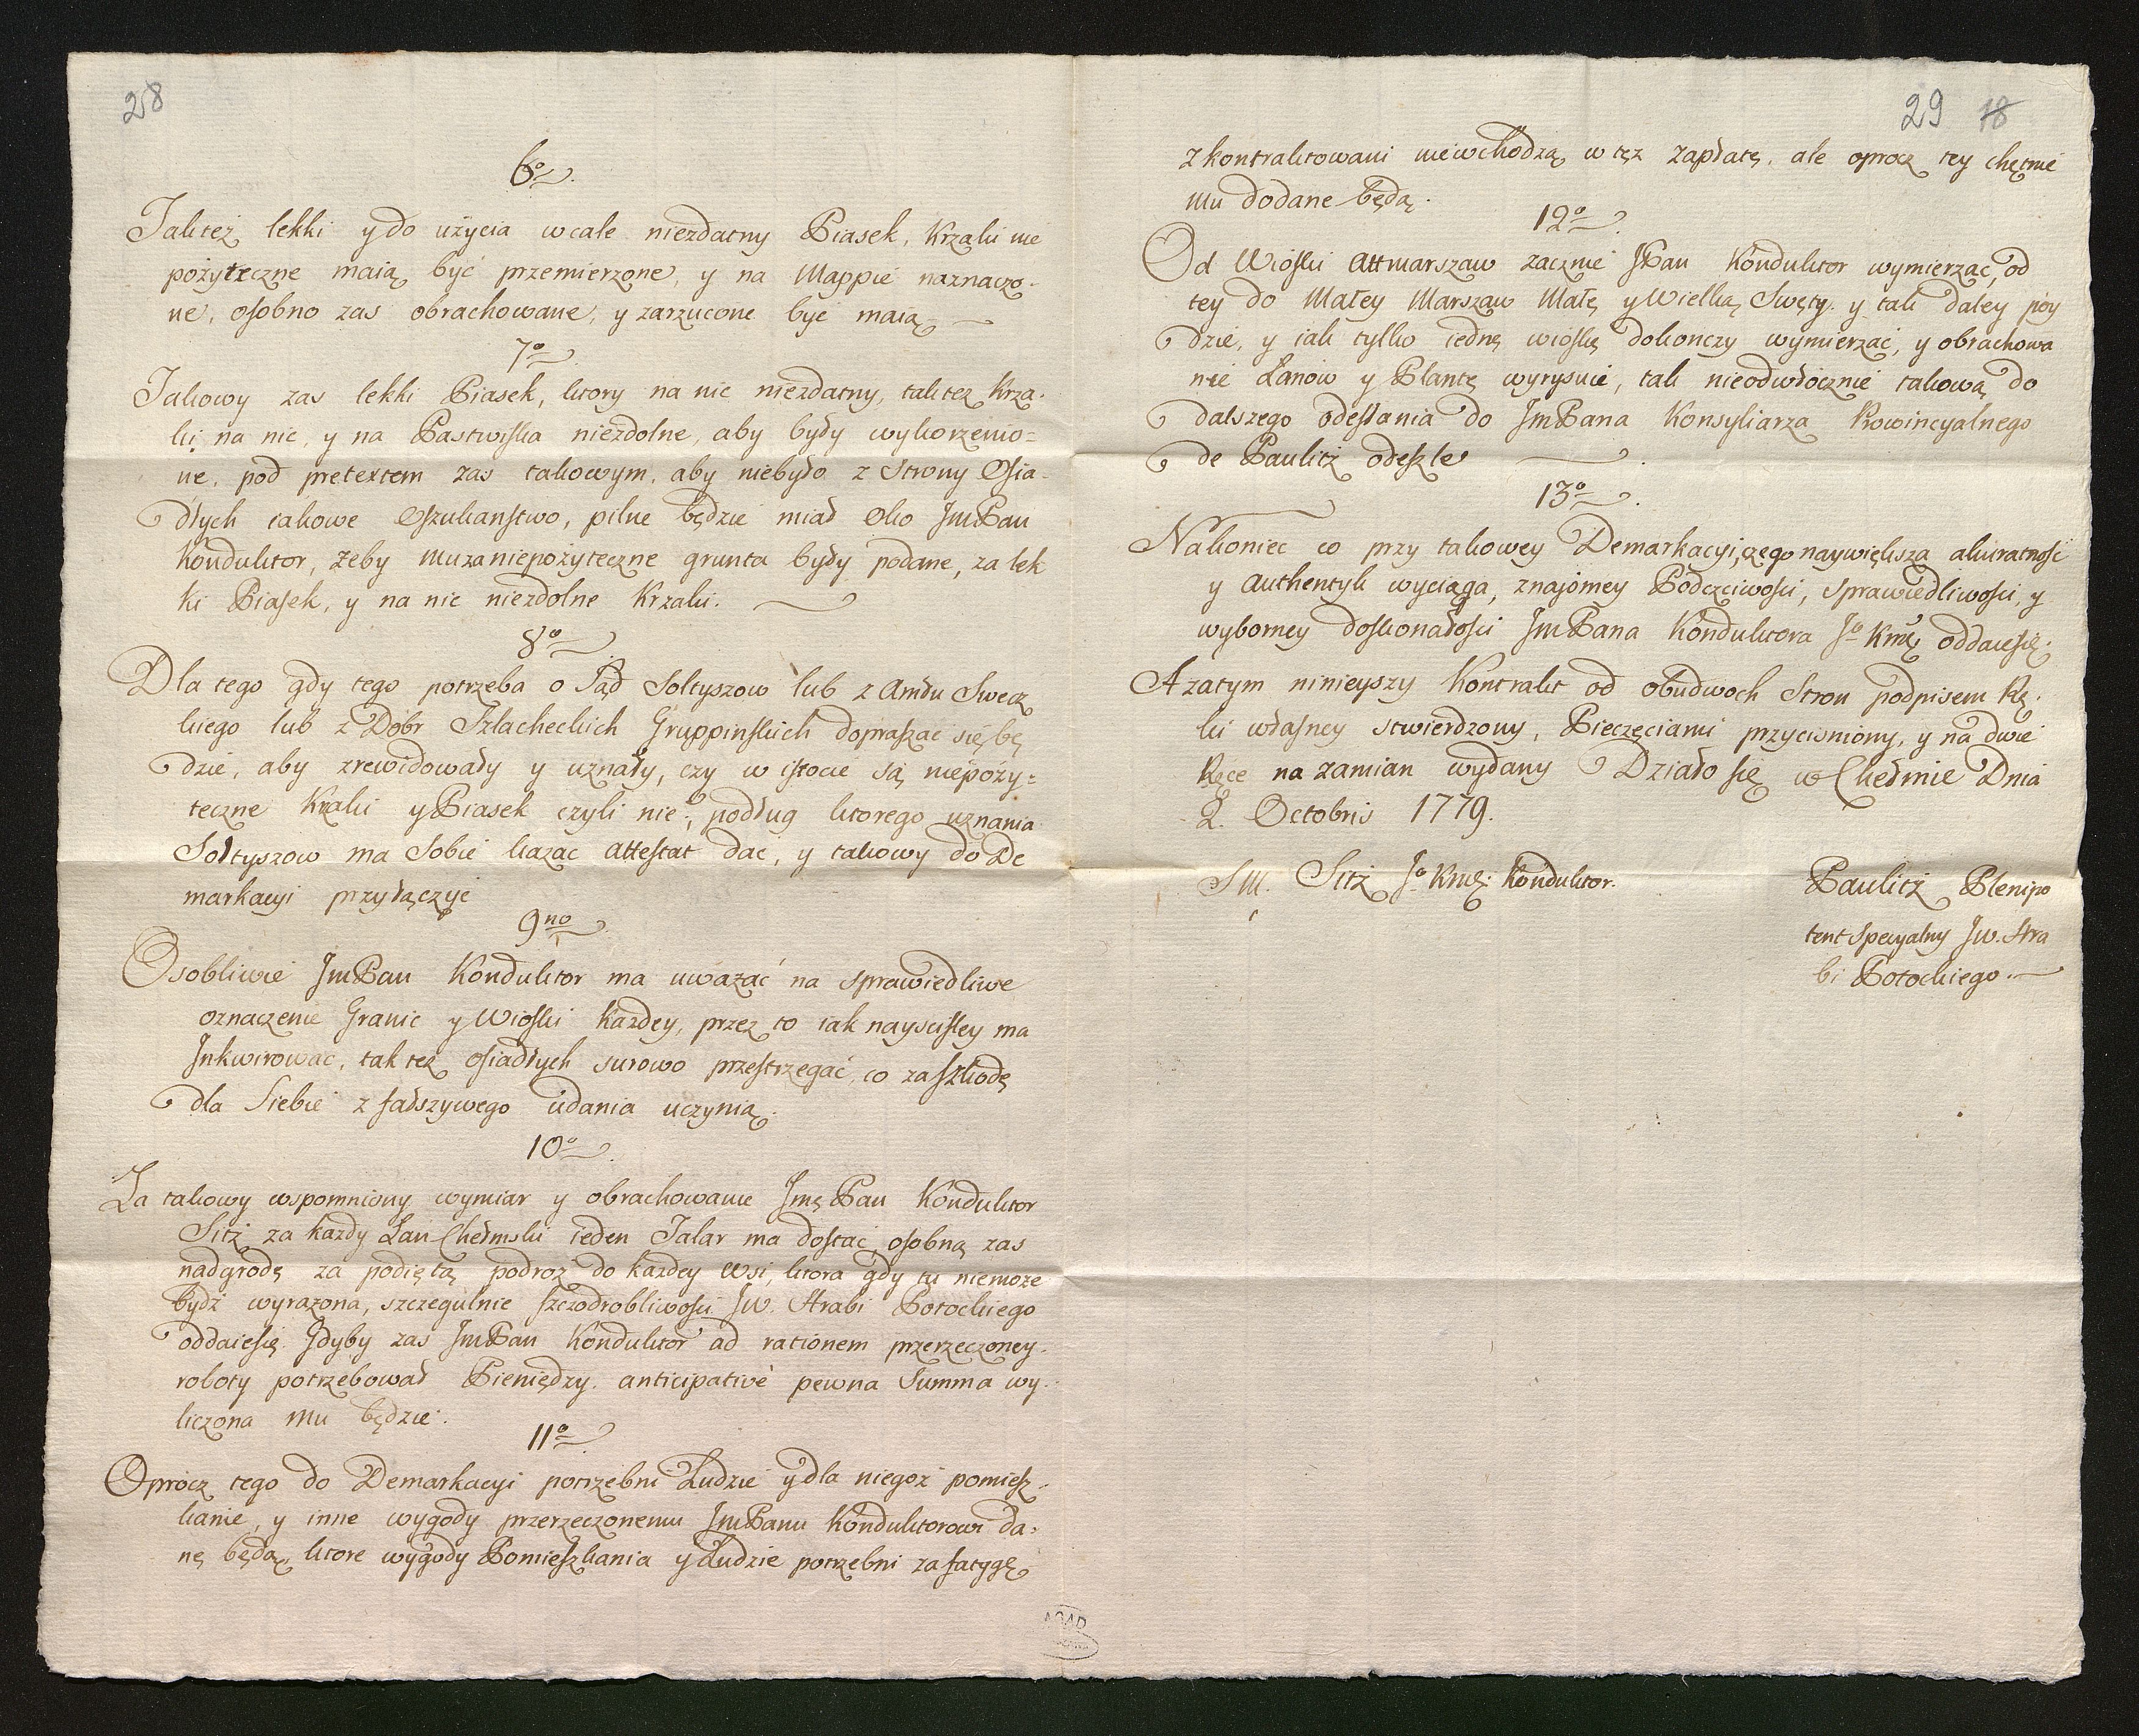 28
6º
Jakteż lekki y do użycia wcale niezdatny Piasek, Krzaki nie
pożyteczne maią być przemierzone, y na Mappie naznaczo-
ne, osobno zas obrachowane, y zarzucone być maią
7º
Jakowy zas lekki Piasek, ktory na nic niezdatny, takteż Krza-
ki na nic, y na Pastwiska niezdolne, aby były wykorzenio=
ne, pod pretextem zas takowym, aby niebyło z Strony Osia-
dłych iakowe Oszukanstwo, pilne będzie miał Oko JmPan
Konduktor, żeby mu za niepożyteczne grunta były podane, za lek
ki Piasek, y na nic niezdolne Krzaki.
8º
Dla tego gdy tego potrzeba o Sąd Soltyszow lub z Amdu Swecz
kiego lub z Dobr Szlacheckich Gruppinskich dopraszac się bę
dzie, aby zrewidowały y uznały, czy w istocie są niepoży=
teczne Krzaki y Piasek czyli nie; podług ktorego uznania
Sołtyszow ma Sobie kazac attestat dać, y takowy do De
markacyi przyłączyć
9no
Osobliwie JmPan Konduktor ma uważać na sprawiedliwe
oznaczenie Granic y Wioski każdey, przez to iak nayscisley ma
Jnkwirowac, tak też osiadłych surowo przestrzegać, co za szkodę
dla Siebie z fałszywego udania uczynią.
10º
Za takowy wspomniony wymiar y obrachowanie Jmę Pan Konduktor
Sitz za każdy Łan Chełmski ieden Talar ma dostać, osobną zas
nadgrodę za podiętą podroż do każdey Wsi, ktora gdy tu niemoże
bydź wyrażona, szczegulnie szczodrobliwosci Jw. Hrabi Potockiego
oddaiesię. Gdyby zas JmPan Konduktor ad rationem przerzeczoney
roboty potrzebował Pieniędzy, anticipative pewna Summa wy-
liczona mu będzie.
11º
Oprocz tego do Demarkacyi potrzebni Ludzie y dla niegoż pomiesz-
kanie, y inne wygody przerzeczonemu JmPanu Konduktorowi da-
nę będą, ktore wygody Pomieszkania y Ludzie potrzebni za fatygę
29 18
zkontraktowani niewchodzą w tęż zapłatę, ale oprocz tey chętnie
mu dodane będą.
12º
Od Wioski Attmarszaw zacznie JPan Konduktor wymierzać, od
tey do Małey Marszaw Małę y Wielką Swęty. y tak daley poy
dzie, y iak tylko iednę wioskę dokonczy wymierzać, y obrachowa
nie Łanow y Plantę wyrysuie, tak nieodwłocznie takową do
dalszego odesłania do JmPana Konsyliarza Prowincyalnego
de Paulitz odeszle
13º
Nakoniec co przy takowey Demarkacyi, czego naywiększa akuratnosc
y authentyk wyciąga, znajomey Podczciwosci, sprawiedliwosci y
wyborney doskonałosci JmPana Konduktora Jº Kmći oddaiesię.
A zatym ninieyszy Kontrakt od obudwoch Stron podpisem Rę-
ki własney stwierdzony, Pieczęciami przycisniony, y na dwie
Ręce na zamian wydany Działo się w Chełmie Dnia
2. Octobris 1779.
SM. Sitz Jº Kmći Konduktor.
Paulitz Plenipo
tent specyalny Jw. Hra
bi Potockiego.
AGAD